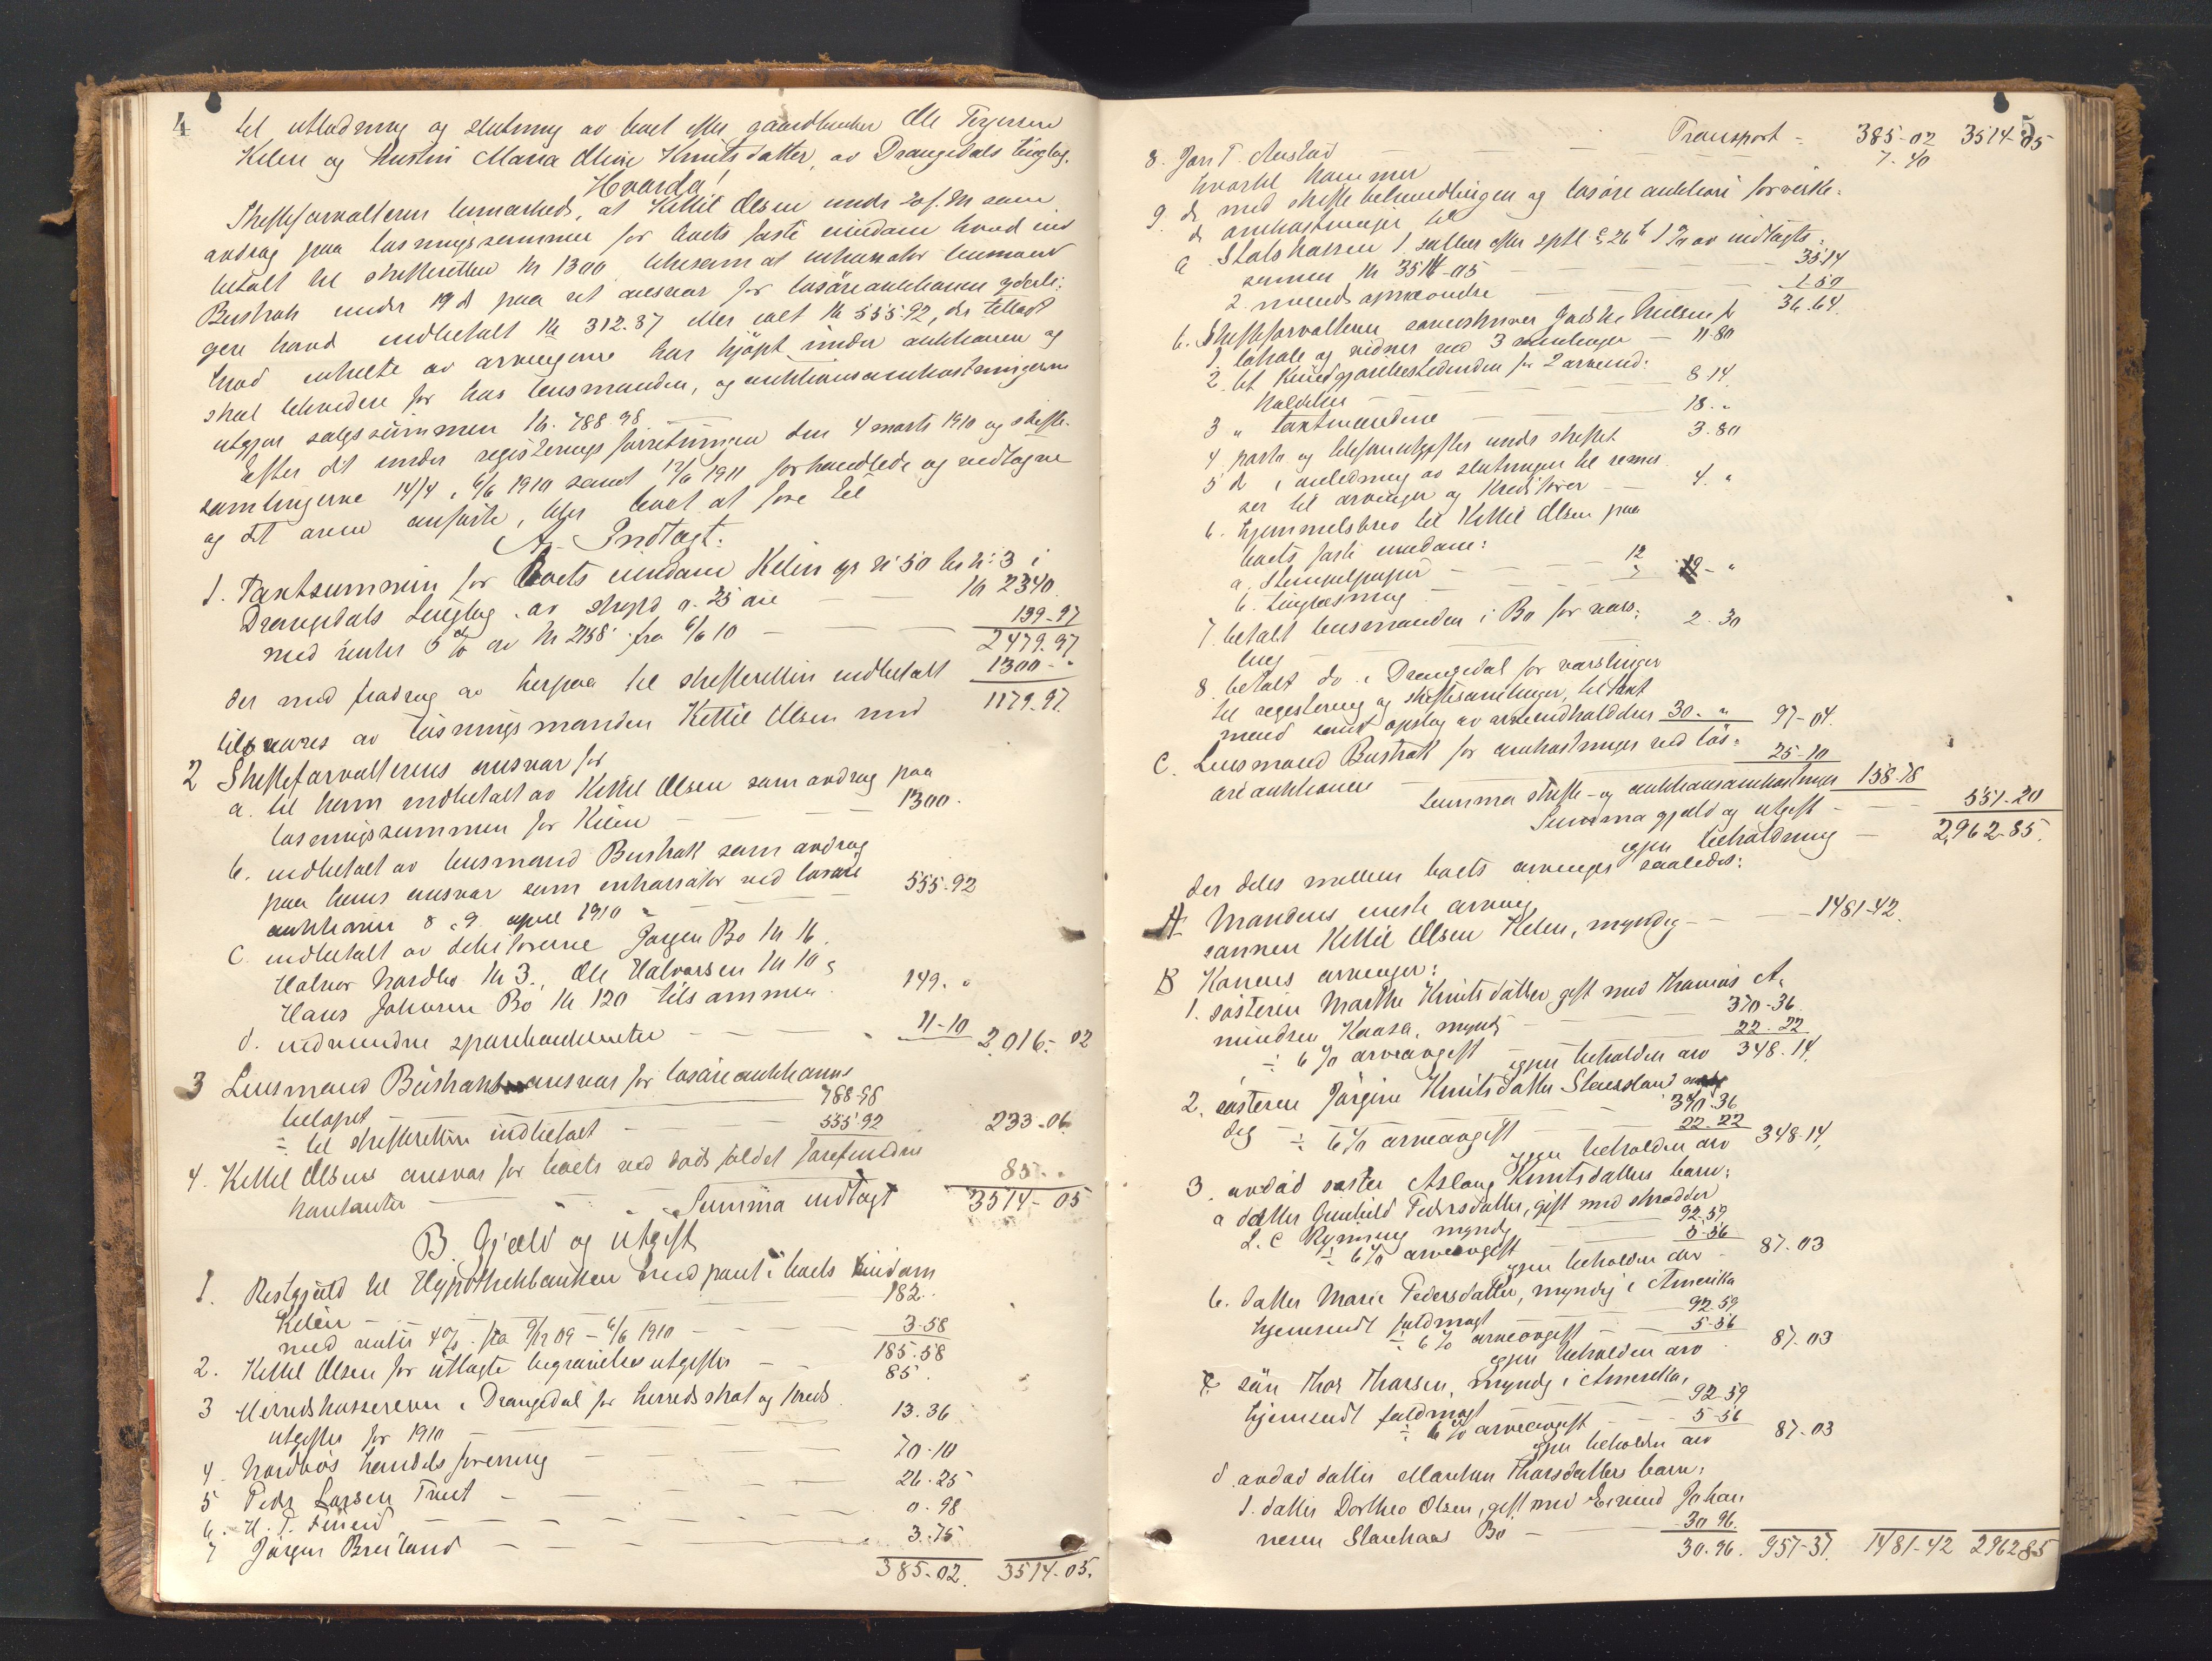 4
til utlodning og slutning av boet efter gaardbruker Ole Terjesen
Kilen og hustru Maria Oline Knutsdatter, av Drangedals tinglag.
Hvorda!
Skifteforvalteren bemerkede, at Kittil Olsen under 20 f. M som
avdrag paa løsningssummen for boets faste eiendom havd ind
betalt til skifteretten kr 1300 likesom at inkassator lensmand
Bustrak under 19 d paa sit ansvar for løsøreauktionen yderli-
gere havd indbetalt kr 312.37 eller ialt kr 555.92, der tillagt
hvad enkelte av arvingerne har kjøpt under auktionen og
skal likvidere for hos lensmanden, og auktionsomkostningerne
utgjør salgssummen kr. 788 98
Efter det under registreringsforretningen den 4 marts 1910 og skifte-
samlingerne 14/4, 6/6 1910 samt 12/6 1911 forhandlede og vedtagne
og det oven anførte, blir boet at føre til
A. Indtægt:
1. Taxtsummen for boets eiendom Kilen gr nr 50 br nr 3 i
Drangedals tinglag av skyld 2. 25 øre kr 2340
med renter 5 % av kr 2158 fra 6/6 10 139-97
2479.97
der med fradrag av herpaa til skifteretten indbetalt 1300-"
tilsvares av løsningsmanden Kittil Olsen med 1179.97
2 Skifteforvalterens ansvar for
a. til ham indbetalt av Kittil Olsen som avdrag paa
løsningssummen for Kilen 1300.
b. indbetalt av lensmand Bustrak som avdrag
paa hans ansvar som inkassator ved løsøre
auktionen 8 & 9 april 1910 555-92
c. indbetalt av debitorerne Jørgen Bø kr 16.
Halvor Nordbø kr 3., Ole Halvorsen kr 10 &
Hans Johnsen Bø kr 120 tilsammen 149. "
d. indvundne sparebankrenter 11-10 2016-02
3 Lensmand Bustraks ansvar for løsøreauktionens
beløpet 788-98
÷ til skifteretten indbetalt 555-92 233-06
4. Kittil Olsens ansvar for boets ved dødsfaldet forefundne
kontanter 85. "
Summa indtægt 3514-05
B. Gjæld og utgift
1. Restgjæld til Hypothekbanken med pant i boets eiendom
Kilen 182.
med renter 4 % fra 9/12 09 - 6/6 1910 3-58
185.58
2. Kittil Olsen for utlagte begravelsesutgifter 85.
3 Herredskassereren i Drangedal for herredsskat og
utgifter for 1910 13.36
4. Nordbøs handelsforening 70-10
5 Peder Larsen Tveit 26.25
6. H. T. 0-98
7 Jørgen Breiland 3.75
385-02. 3514-05.
5
Transport - 385-02 3514-05
8. Jon T. Austad 7-40
hvortil kommer
9. de med skiftebehandlingen og løsøreauktion forvirke-
de omkostninger til
a Statskassen 1. sallær efter sptl § 26 b 1 % av indtægts
summen kr 3514-05 35.14
2. mænds opnævnelse 1-50
36.64
b. Skifteforvalteren sorenskriver
1. lokale og vidner ved 3 samlinger 11-80
2. bet Kundgjørelsestidenden for 2 arveind-
kaldelser 8-14
3 " taxtmændene 18. "
4 porto og telefonutgifter under skiftet 3.80
5 d i anledning av slutningen til remis
ser til arvinger og kreditorer 4. "
6. hjemmelsbrev til Kittil Olsen paa
boets faste eiendom:
a. Stempelpapir 12
b. tinglæsning 7 19-"
7. betalt lensmanden i Bø for vars-
ling 2-30
8. betalt do i Drangedal for varslinger
til registrering og skiftesamlinger, til taxt
mænd samt opslag av arveindkaldelser 30. " 97-04.
C. Lensmand Bustrak for omkostninger ved løs-
øreauktionen 25-10
Summa skifte- og auktionsomkostninger 158-78
Summa gjæld og utgift 551-20
igjen beholdning 2962-85.
der deles mellem boets arvinger saaledes:
A Mandens eneste arving
sønnen Kittil Olsen Kilen, myndig 1481-42.
B Konens arvinger:
1. søsteren Marthe Knutsdatter gift med Thomas A.
mindsen Kaasa, myndig 370-36
÷ 6 % arveavgift 22-22
igjen beholden arv 348-14.
2. søsteren Jørgine Knutsdatter Stensland myn
dig 370-36
÷ 6 % arveavgift 22-22
igjen beholden arv 348-14.
3. avdød søster Aslaug Knutsdatters barn:
a datter Gunhild Pedersdatter, gift med skrædder
L. C Rynning myndig 92-59
÷ 6 % arveavgift 5-56
igjen beholden arv 87-03
b. datter Marie Pedersdatter, myndig i Amerika
hjemsendt fuldmagt 92-59
÷ 6 % arveavgift 5-56
igjen beholden arv 87-03
c søn Thor Thorsen, myndig i Amerika,
hjemsendt fuldmagt 92-59
÷ 6 % arveavgift 5-56
igjen beholden arv 87-03
d. avdød datter Maren Thorsdatters barn:
1. datter Dorthea Olsen, gift med Eivind Johan
nesen Stavhaas Bø 30 96.
30.96. 957-37. 1481-42 2962 85